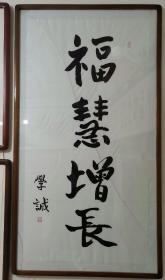 福慧增長
學誠